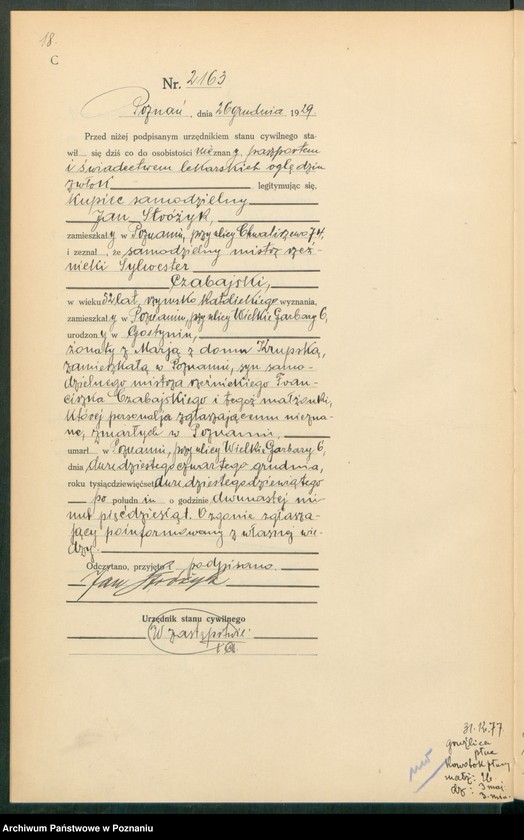 18.
C
Nr. 2163
Poznań, dnia 26 grudnia 1929
Przed niżej podpisanym urzędnikiem stanu cywilnego sta-
wił się dziś co do osobistości nieznany, paszportem
i świadectwem lekarskich oględzin
zwłok legitymując się,
kupiec samodzielny
Jan Stróżyk,
zamieszkały w Poznaniu, przy ulicy Chwaliszewo 74,
i zeznał, że samodzielny mistrz rzeź-
nicki Sylwester
Czabajski,
w wieku 52 lat, rzymsko katolickiego wyznania,
zamieszkały w Poznaniu, przy ulicy Wielkie Garbary 6,
urodzony w Gostyniu,
żonaty z Marją z domu Krupską,
zamieszkałą w Poznaniu, syn samo-
dzielnego mistrza rzeźnickiego Fran-
ciszka Czabajskiego i tegoż małżonki,
której personalja zgłaszającemu niezna-
ne, zmarłych w Poznaniu,
umarł w Poznaniu, przy ulicy Wielkie Garbary 6,
dnia dwudziestego czwartego grudnia,
roku tysiącdziewięćset dwudziestego dziewiątego
po połudn iu o godzinie dwunastej mi-
nut pięćdziesiąt. O zgonie zgłasza-
jący poinformowany z własnej wie-
dzy.
Odczytano, przyjęto i podpisano
Jan Stróżyk
Urzędnik stanu cywilnego
W zastępstwie:
31.12.77
gruźlica
płuc
małż: 26
dz: 3 maj
Archiwum Państwowe w Poznaniu